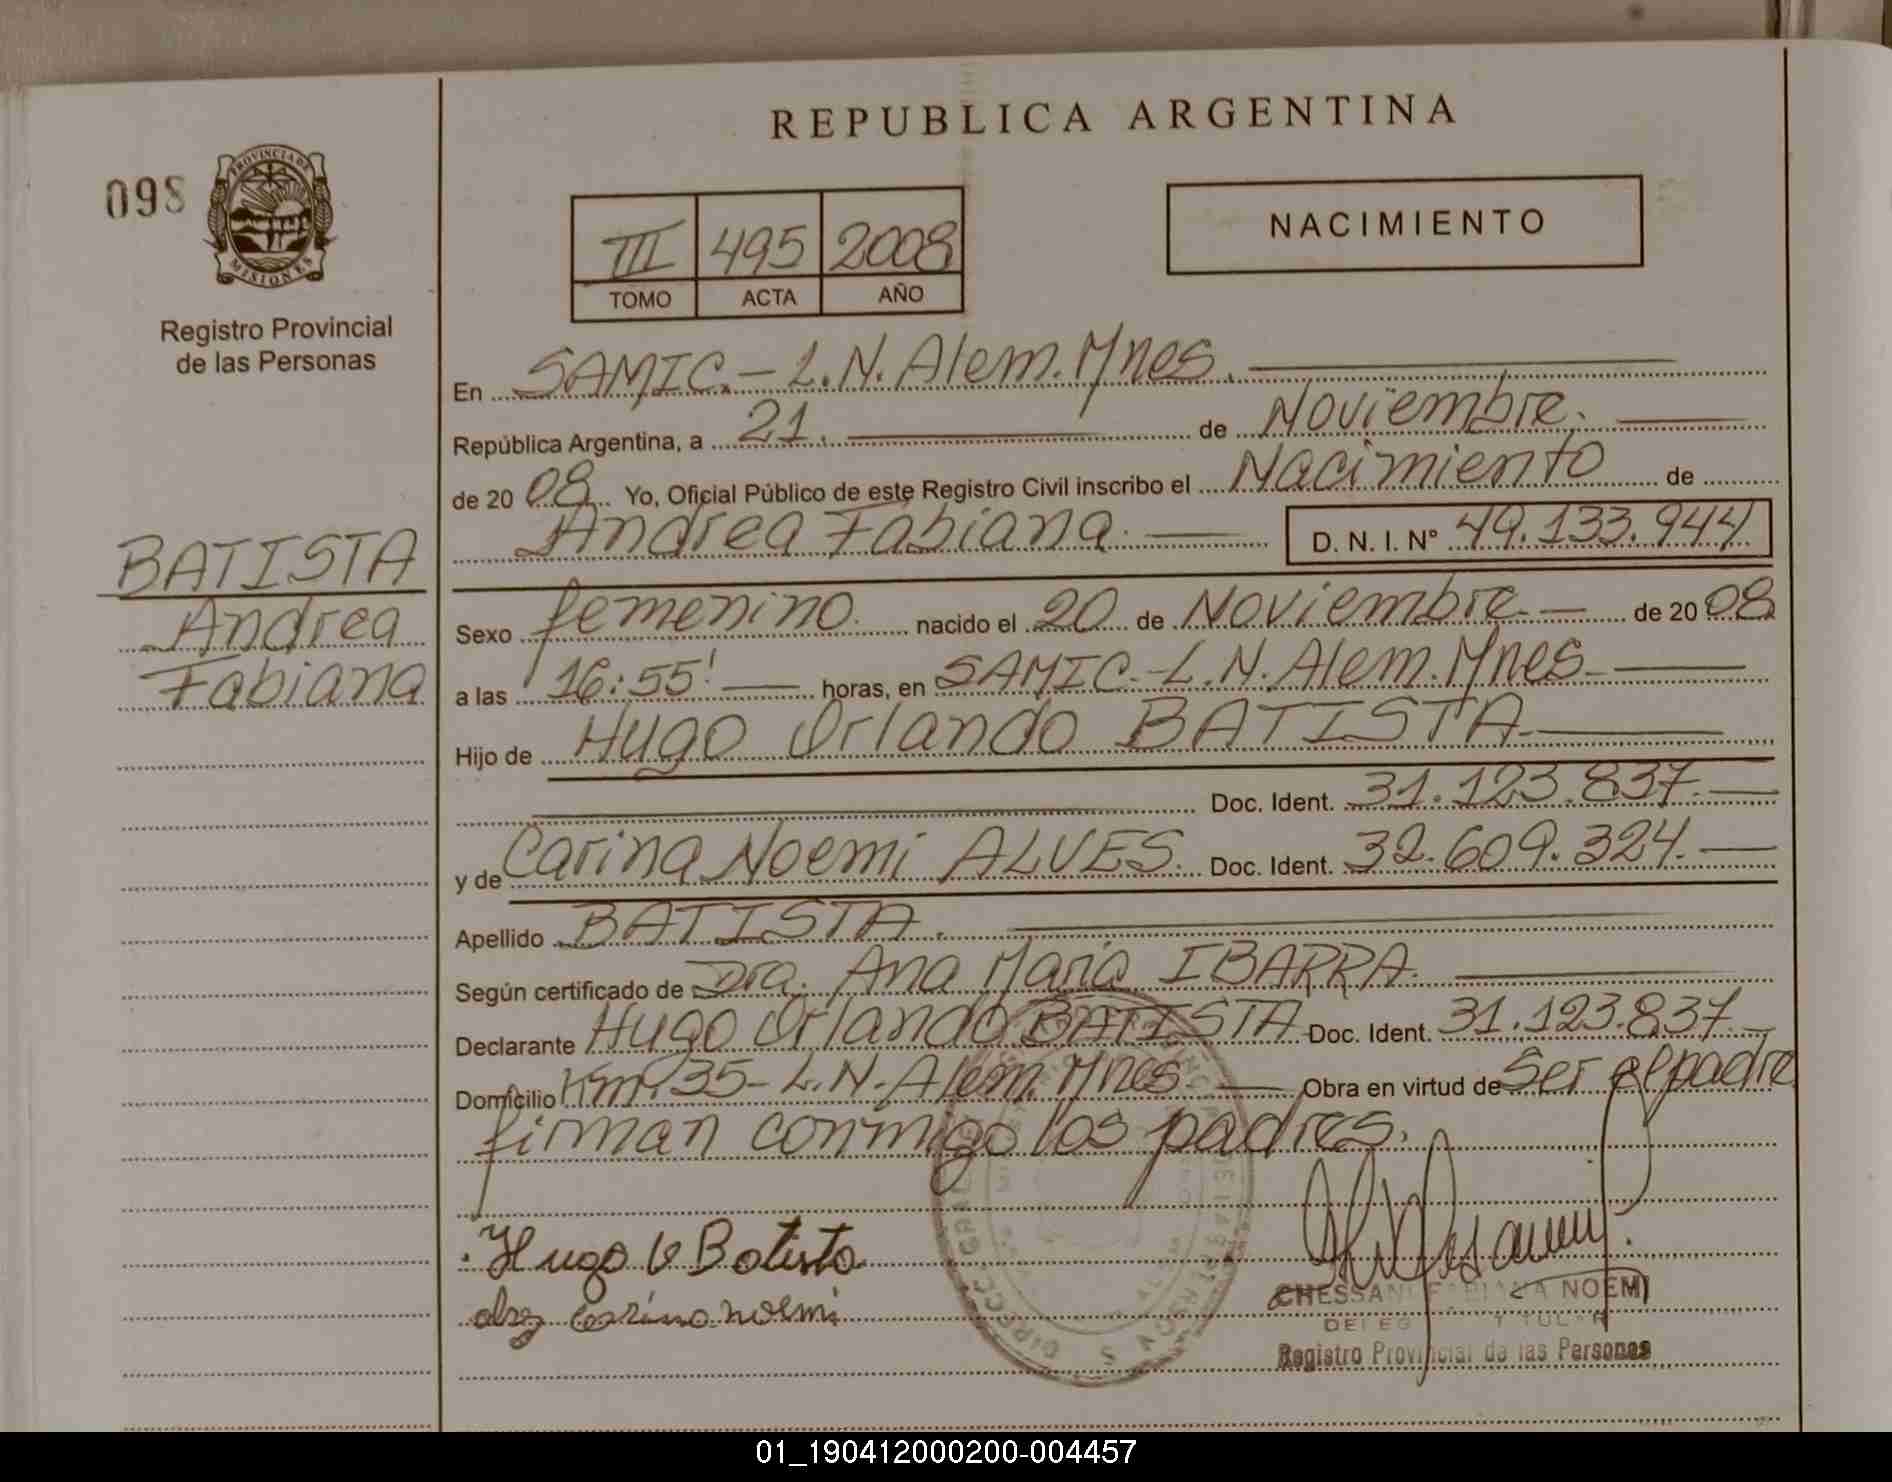 REPUBLICA ARGENTINA
098
PROVINCIA DE
MISIONES
Registro Provincial
de las Personas
III 495 2008
TOMO ACTA AÑO
NACIMIENTO
En SAMIC.- L.N. Alem. Mnes.
República Argentina, a 21. de Noviembre.
de 20 08 Yo, Oficial Público de este Registro Civil inscribo el Nacimiento de
Andrea Fabiana. D. N. I. Nº 49.133.944
BATISTA
Andrea
Fabiana
Sexo femenino. nacido el 20 de Noviembre de 20 08
a las 16:55' horas, en SAMIC.-L.N. Alem. Mnes
Hijo de Hugo Orlando BATISTA
Doc. Ident. 31.123.837.
y de Carina Noemi ALVES. Doc. Ident. 32.609.324.
Apellido BATISTA.
Según certificado de Dra. Ana Maria IBARRA.
Declarante Hugo Orlando BATISTA Doc. Ident. 31.123.837
Domicilio Km. 35- L.N. Alem. Mnes. Obra en virtud de Ser el padre
firman conmigo los padres.
Hugo O Batista
noemi
CHESSANI FABIANA NOEMI
Registro Provincial de las Personas
01_190412000200-004457